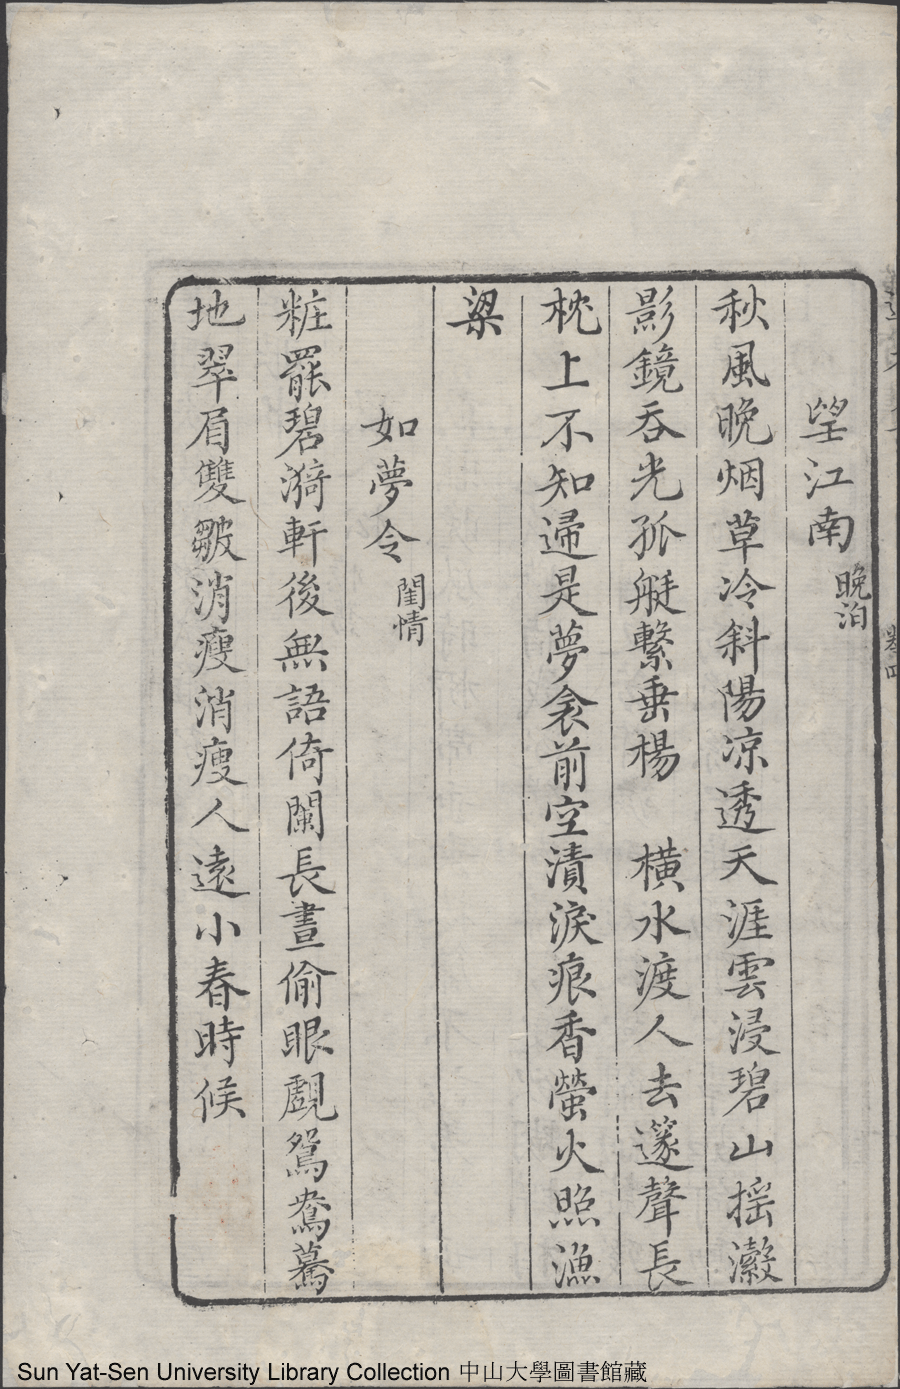 望江南 晚泊
秋風晚烟草冷斜陽凉透天涯雲浸碧山揺瀲
影鏡吞光孤艇繫垂楊 橫水渡人去邃聲長
枕上不知歸是夢衾前空漬淚痕香螢火照漁
梁
如夢令 閨情
粧罷碧漪軒後無語倚闌長晝偷眼覰鴛鴦驀
地翠眉雙皺消瘦消瘦人遠小春時候
卷四
Sun Yat-Sen University Library Collection 中山大學圖書館藏